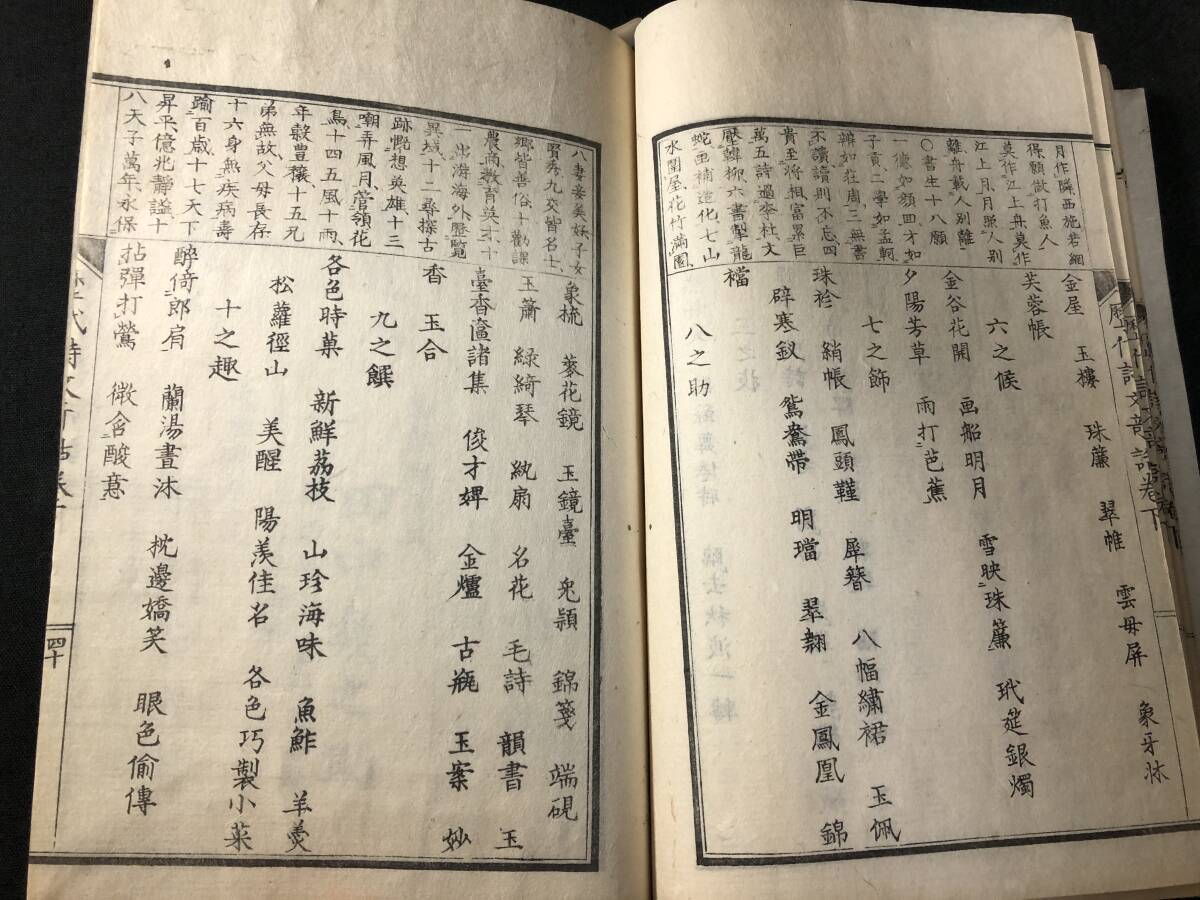 月作隣西施若網
得願做打魚人
莫作江上舟莫作
江上月月照人別
離舟載人別離
○書生十八願
一德如顔四才如
子貢二學如孟軻
辨如莊周三無書
不讀讀則不忘四
貴至將相富累巨
萬五詩過李杜文
壓韓柳六書掣龍
蛇画補造化七山
水圍屋花竹滿園
金屋 玉樓 珠簾 翠帷 雲母屏 象牙牀
芙蓉帳
六之候
金谷花開 画船明月 雪映珠簾 玳筵銀燭
夕陽芳草 雨打芭蕉
七之飾
珠衫 綃帳 鳳頭鞋 犀簪 八幅繡裙 玉佩
辟寒釵 鴛鴦帶 明璫 翠翹 金鳳凰 錦
襠
八之助
歷代詩文部話卷下
八妻妾美妖子女
賢秀九交皆名士
鄉皆善俗十勸課
農商敎育英才十
一出游海外歷覽
異域十二尋探古
跡慨想英雄十三
嘲弄風月管領花
鳥十四五風十雨
年穀豊穰十五兄
弟無故父母長存
十六身無疾病壽
踰百歲十七天下
昇平億兆靜謐十
八天子萬年永保
象梳 菱花鏡 玉鏡臺 兎頴 錦箋 端硯
玉簫 綠綺琴 紈扇 名花 毛詩 韻書 玉
臺香奩諸集 俊才婢 金爐 古瓶 玉案 妙
香 玉合
九之饌
各色時菓 新鮮荔枝 山珍海味 魚鮓 羊羹
松蘿徑山 美醒 陽羨佳名 各色巧製小菜
十之趣
醉倚郎肩 蘭湯晝沐 枕邊嬌笑 眼色偷傳
拈彈打鶯 微含酸意
四十